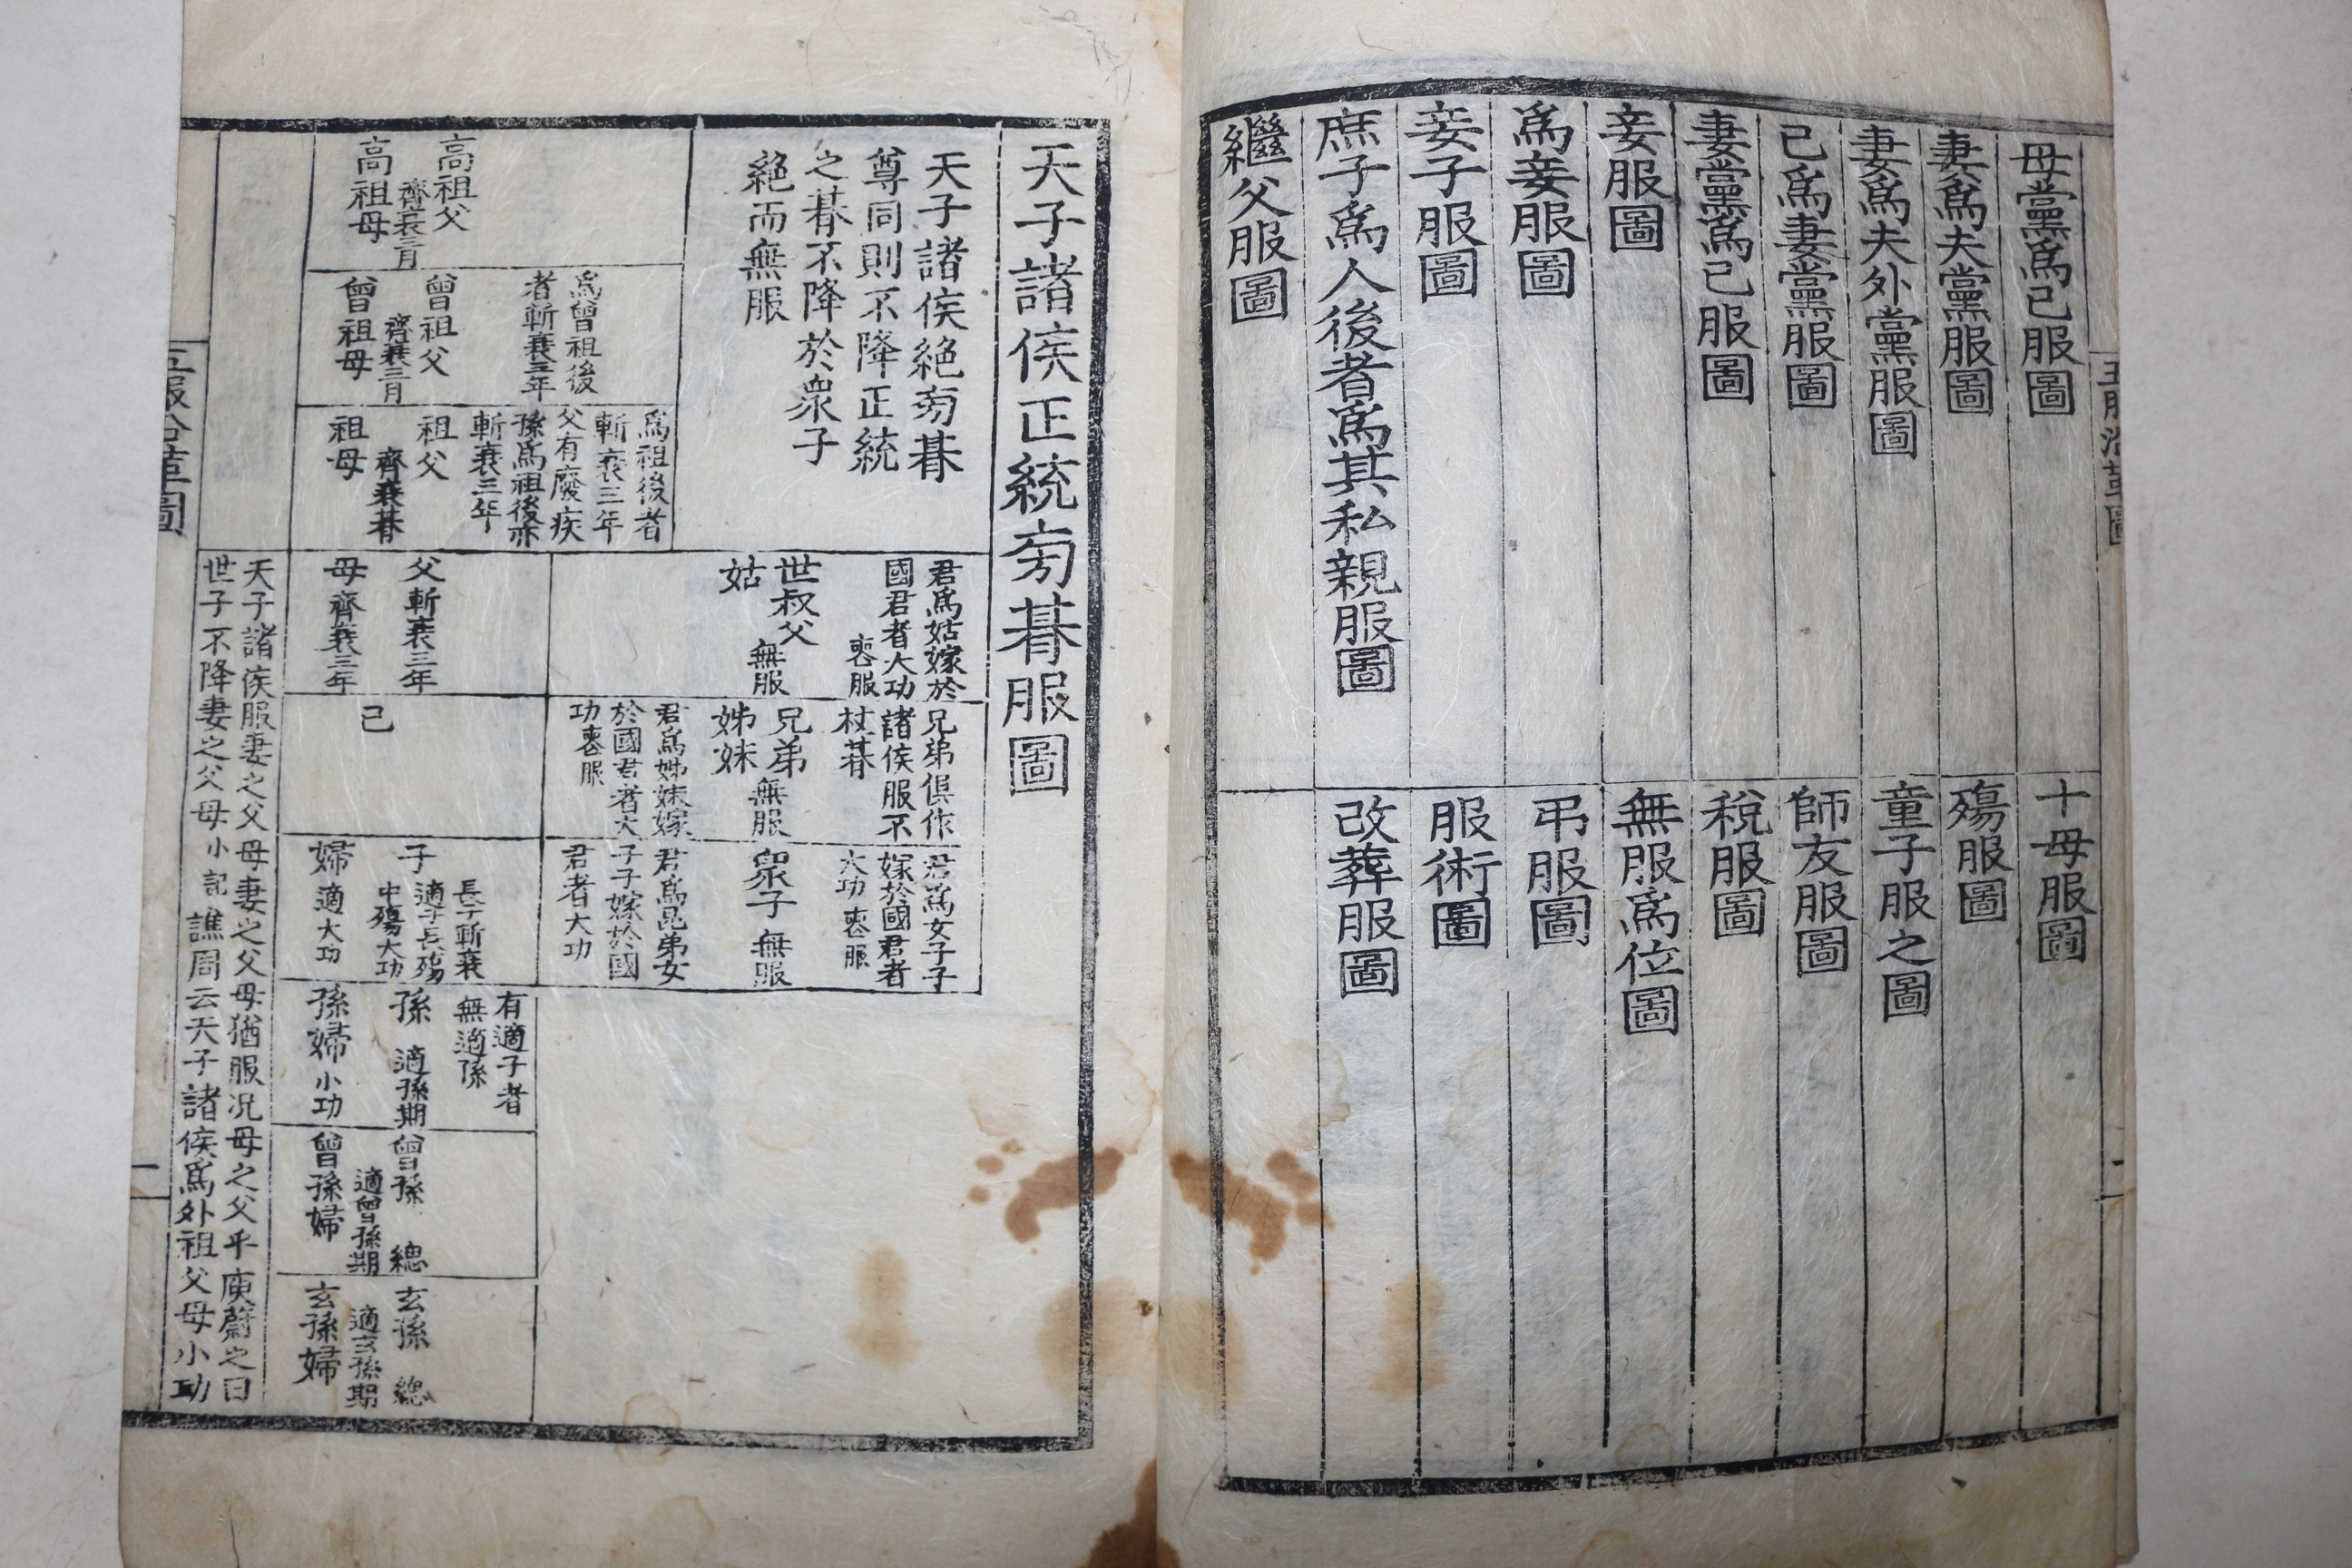 母黨爲己服圖
妻爲夫黨服圖
妻爲夫外黨服圖
己爲妻黨服圖
妻黨爲己服圖
妾服圖
爲妾服圖
妾子服圖
庶子爲人後者爲其私親服圖
繼父服圖
十母服圖
殤服圖
童子服之圖
師友服圖
稅服圖
無服爲位圖
弔服圖
服術圖
改葬服圖
天子諸侯正統旁朞服圖
天子諸侯絕旁朞
尊同則不降正統
之朞不降於衆子
絕而無服
高祖父
齊衰三月
高祖母
爲曾祖後
者斬衰三年
曾祖父
齊衰三月
曾祖母
爲祖後者
斬衰三年
父有廢疾
孫爲祖後亦
斬衰三年
祖父
齊衰朞
祖母
君爲姑嫁於
國君者大功
喪服
世叔父
無服
姑
父斬衰三年
母齊衰三年
兄弟俱作
諸侯服不
杖朞
兄弟
無服
姊妹
君爲姊妹嫁
於國君者大
功喪服
己
君爲女子子
嫁於國君者
大功喪服
衆子無服
君爲昆弟女
子子嫁於國
君者大功
長子斬衰
子適子長殤
中殤大功
婦適大功
有適子者
無適孫
孫適孫期
孫婦小功
曾孫緦
適曾孫期
曾孫婦
玄孫緦
適玄孫期
玄孫婦
天子諸侯服妻之父母妻之父母猶服况母之父乎庾蔚之曰
世子不降妻之父母小記譙周云天子諸侯爲外祖父母小功
五服沿革圖